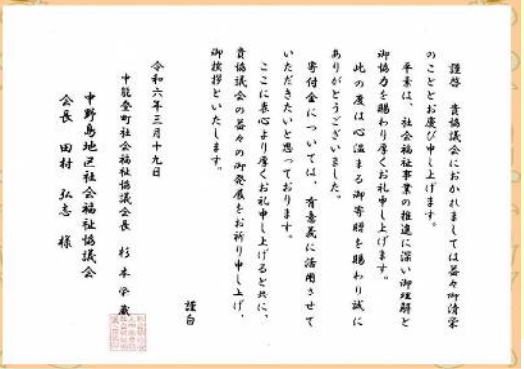 謹啓　貴協議会におかれましては益々御清栄
のこととお慶び申し上げます。
平素は、社会福祉事業の推進に深い御理解と
御協力を賜わり厚くお礼申し上げます。
此の度は心温まる御寄贈を賜わり誠に
ありがとうございました。
寄付金については、有意義に活用させて
いただきたいと思っております。
ここに衷心より厚くお礼申し上げると共に、
貴協議会の益々の御発展をお祈り申し上げ、
御挨拶といたします。
謹白
令和六年三月十九日
中能登町社会福祉協議会長　杉本栄蔵
中野島地区社会福祉協議会
会長　田村　弘志　様